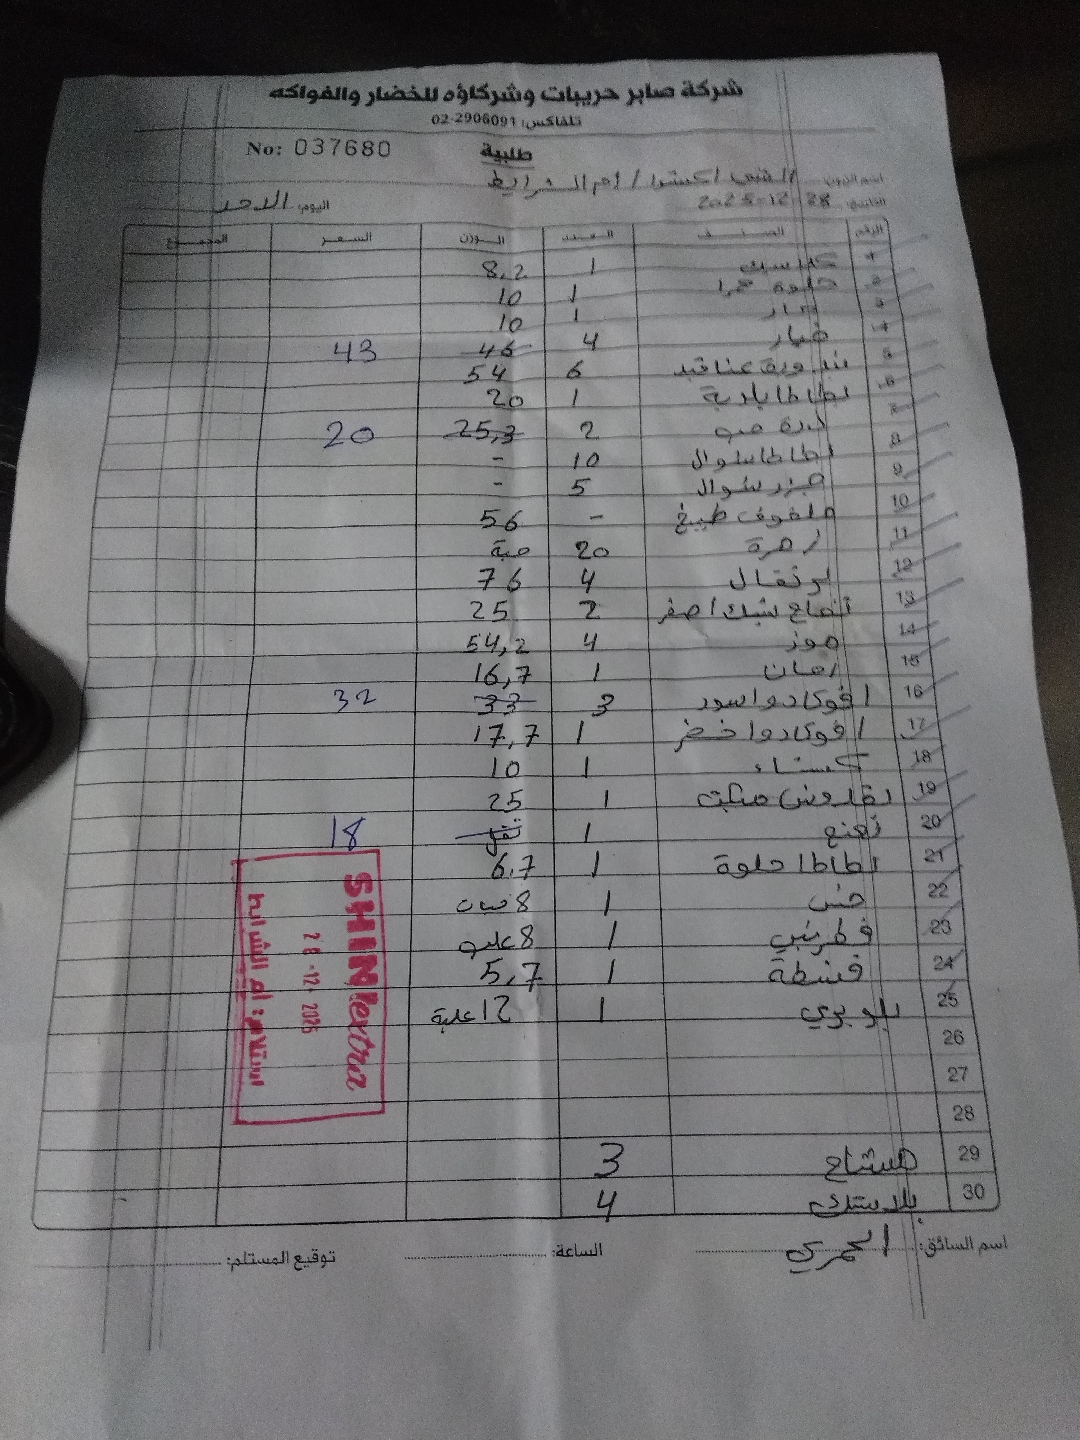 شركة صابر حريبات وشركاؤه للخضار والفواكه
تلفاكس: 02-2906091
No: 037680
طلبية
اسم الزبون: الشني اكسترا / ام الشرايط
التاريخ: 2025-12-28 اليوم: الاحد
الرقم الصنف العدد الوزن السعر المجموع
1 كلاسيك 1 8,2
2 حلوة حمرا 1 10
3 حار 1 10
4 خيار 4 46 43
5 بندورة عناقيد 6 54
6 بطاطا بلدية 1 20
7 ذرة حب 2 25,3 20
8 بطاطا شوال 10 -
9 جزر شوال 5 -
10 ملفوف طبيخ - 56
11 زهرة 20 حبة
12 برتقال 4 76
13 تفاح شبك اصفر 2 25
14 موز 4 54,2
15 رمان 1 16,7
16 افوكادو اسود 3 33 32
17 افوكادو اخضر 1 17,7
18 كستناء 1 10
19 بقدونس مبكت 1 25
20 نعنع 1 18
21 بطاطا حلوة 1 6,7
22 خس 1 8 حبات
23 فطر بني 1 8 علب
24 قشطة 1 5,7
25 بلو بري 1 12 علبة
26
27
28
29 مشتاح 3
30 بلاستك 4
SHINIextra
28-12-2025
استلام: ام الشرايط
اسم السائق: العمري الساعة: توقيع المستلم: